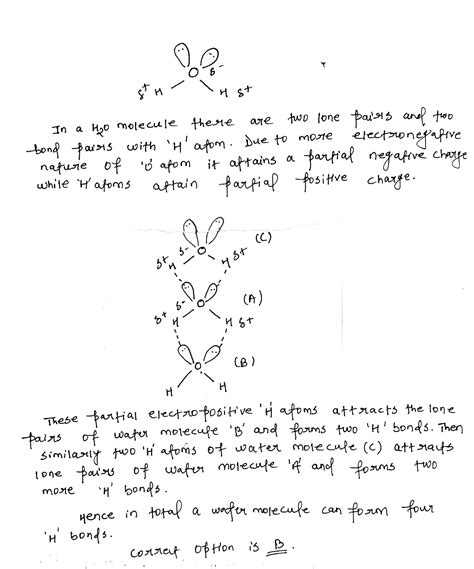 δ-
δ+ H O H δ+
In a H2O molecule there are two lone pairs and two
bond pairs with 'H' atom. Due to more electronegative
nature of 'O' atom it attains a partial negative charge
while 'H' atoms attain partial positive charge.
δ- O (C)
δ+ H H δ+
δ- O (A)
δ+ H H δ+
O (B)
H H
These partial electropositive 'H' atoms attracts the lone
pairs of water molecule 'B' and forms two 'H' bonds. Then
similarly two 'H' atoms of water molecule (C) attracts
lone pairs of water molecule 'A' and forms two
more 'H' bonds.
Hence in total a water molecule can form four
'H' bonds.
Correct option is B.